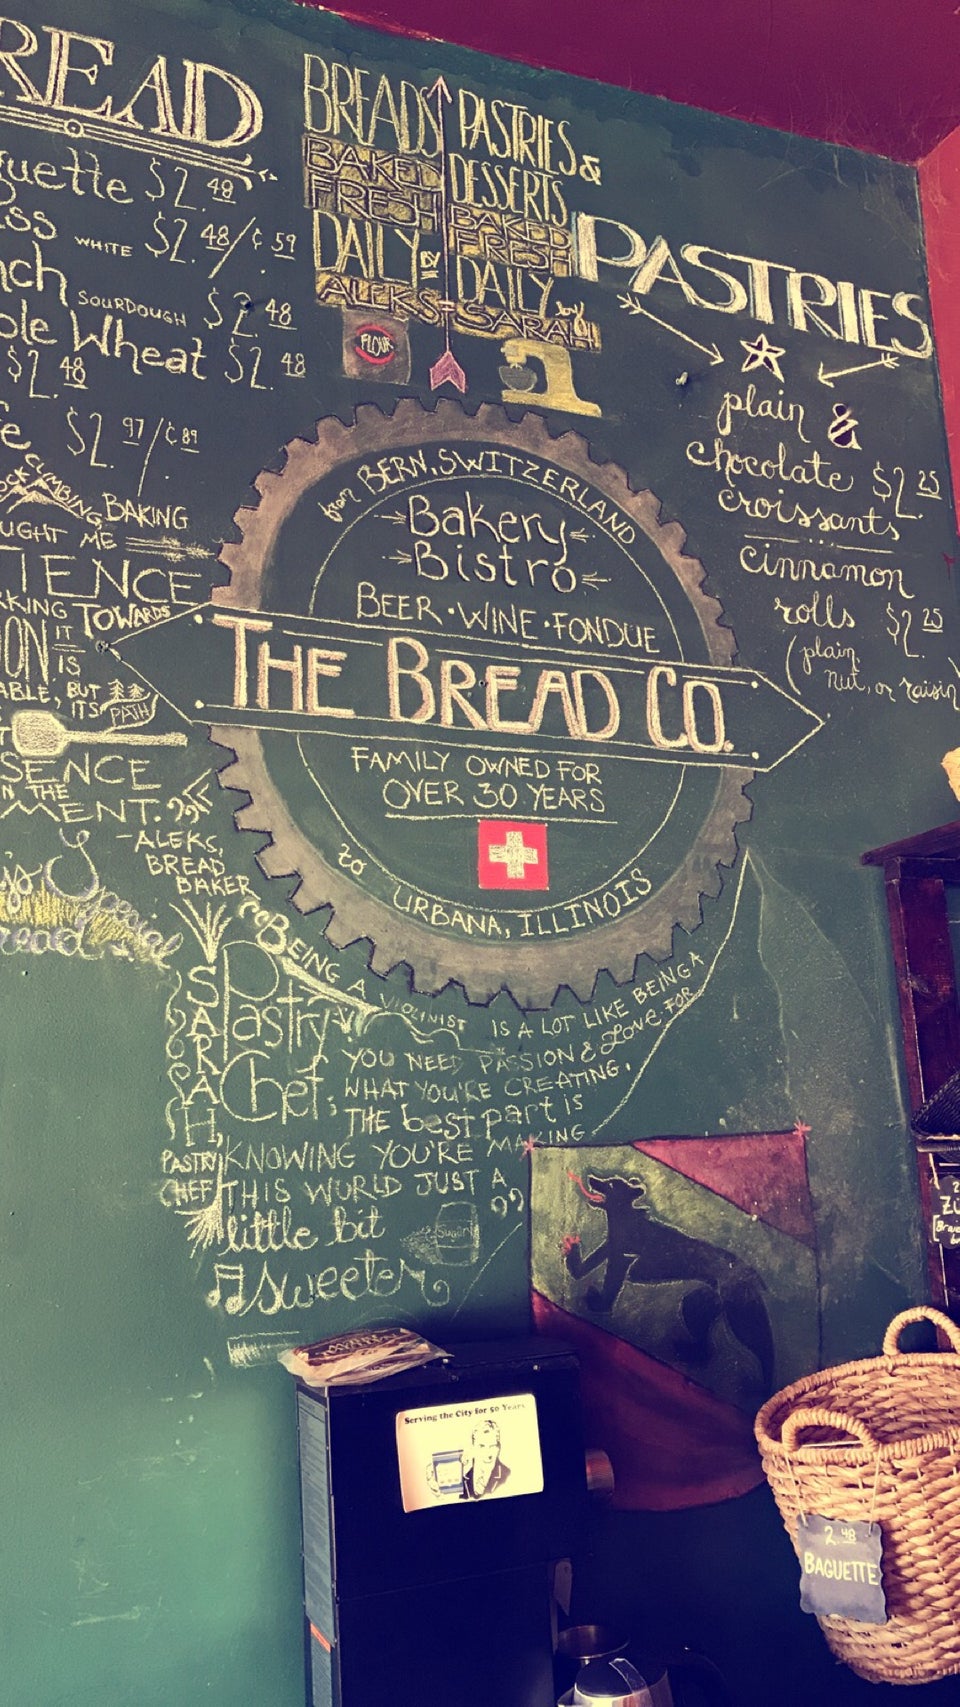 READ
uette $2.48
ss WHITE $2.48/¢.59
nch SOURDOUGH $2.48
ole Wheat $2.48
$2.48
fe $2.97/¢89
BREADS
BAKED
FRESH
DAILY BY
ALEKS
PASTRIES &
DESSERTS
BAKED
FRESH
DAILY by
SARAH
FLOUR
PASTRIES
plain &
chocolate $2.25
croissants
cinnamon
rolls $2.25
(plain,
nut, or raisin)
from BERN, SWITZERLAND
Bakery
Bistro
BEER · WINE · FONDUE
THE BREAD CO.
FAMILY OWNED FOR
OVER 30 YEARS
to URBANA, ILLINOIS
CLIMBING BAKING
UGHT ME
TIENCE
RKING TOWARDS
ON IT IS
ABLE, BUT
ITS PATH
SENCE
N THE
MENT."
-ALEKS,
BREAD
BAKER
SARAH,
PASTRY
CHEF
Pastry
Chef;
"BEING A VIOLINIST IS A LOT LIKE BEING A
YOU NEED PASSION & LOVE FOR
WHAT YOU'RE CREATING.
THE best part is
KNOWING YOU'RE MAKING
THIS WORLD JUST A
little bit
sweeter
"
Sugar
Serving the City for 50 Years
2.48
BAGUETTE